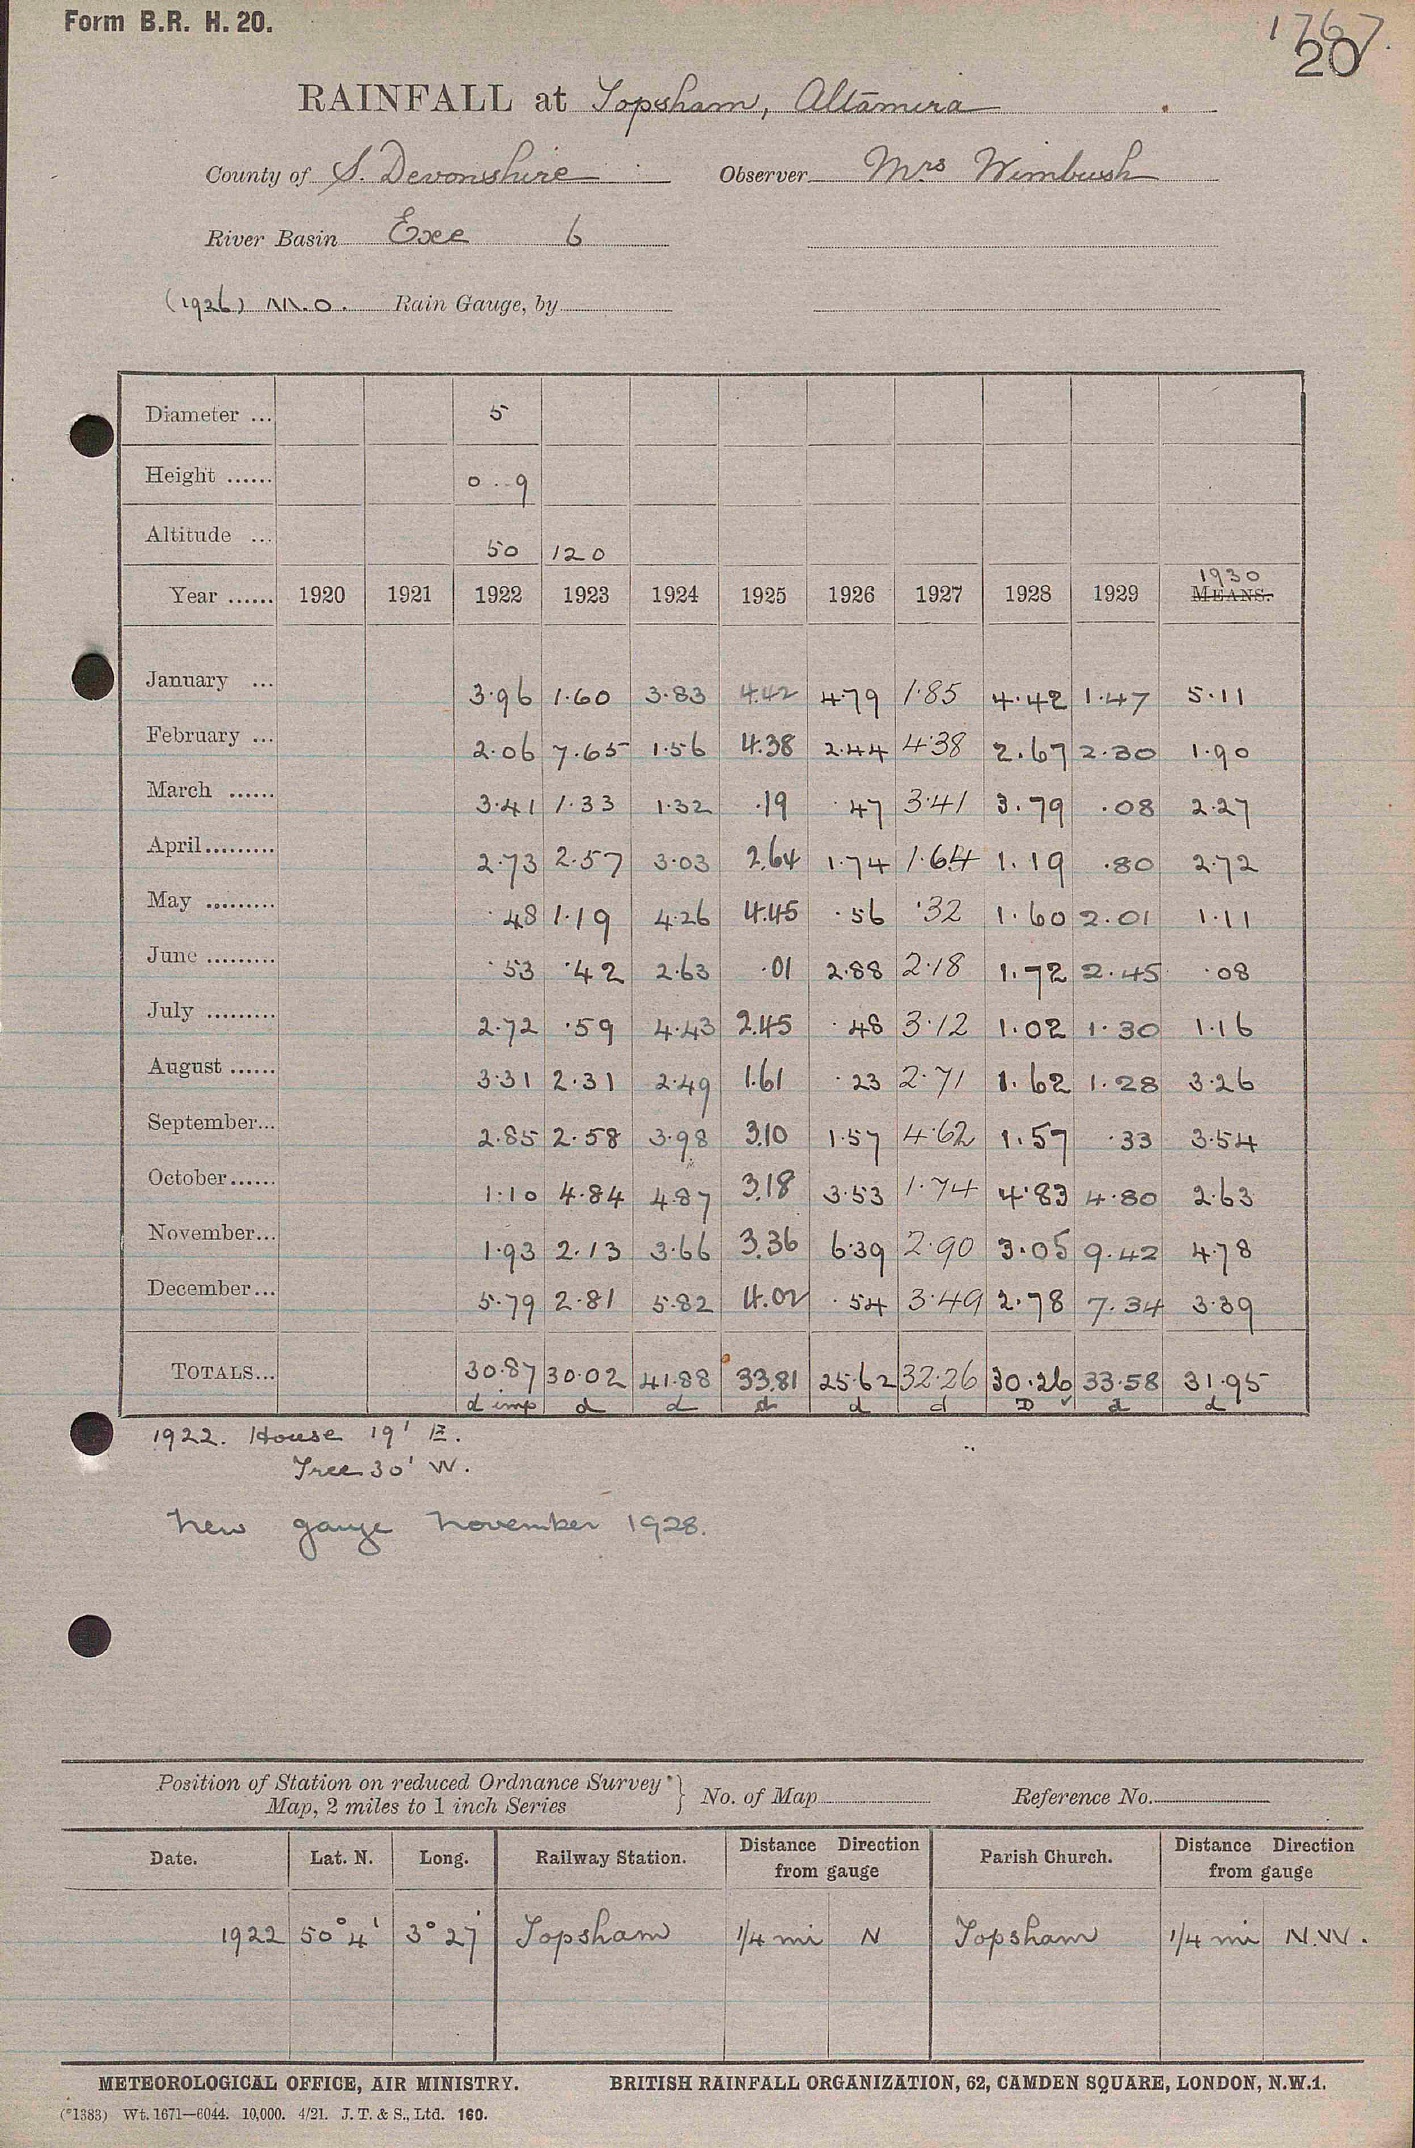 Form B.R. H. 20.
1767.
20
RAINFALL at Topsham, Altamira
County of S. Devonshire Observer Mrs Wimbush
River Basin Exe 6
(1926) M.O. Rain Gauge, by
Diameter ... 5
Height ...... 0..9
Altitude ... 50 120
Year ...... 1920 1921 1922 1923 1924 1925 1926 1927 1928 1929 1930 MEANS.
January ... 3.96 1.60 3.83 4.42 4.79 1.85 4.42 1.47 5.11
February ... 2.06 7.65 1.56 4.38 2.44 4.38 2.67 2.30 1.90
March ...... 3.41 1.33 1.32 .19 .47 3.41 3.79 .08 2.27
April......... 2.73 2.57 3.03 2.64 1.74 1.64 1.19 .80 2.72
May ......... .48 1.19 4.26 4.45 .56 .32 1.60 2.01 1.11
June ......... .53 .42 2.63 .01 2.88 2.18 1.72 2.45 .08
July ......... 2.72 .59 4.43 2.45 .48 3.12 1.02 1.30 1.16
August ...... 3.31 2.31 2.49 1.61 .23 2.71 1.62 1.28 3.26
September... 2.85 2.58 3.98 3.10 1.57 4.62 1.57 .33 3.54
October...... 1.10 4.84 4.87 3.18 3.53 1.74 4.83 4.80 2.63
November... 1.93 2.13 3.66 3.36 6.39 2.90 3.05 9.42 4.78
December... 5.79 2.81 5.82 4.02 .54 3.49 2.78 7.34 3.39
TOTALS... 30.87 30.02 41.88 33.81 25.62 32.26 30.26 33.58 31.95
d imp d d d d d D ✓ d d
1922. House 19' E.
Tree 30' W.
New gauge November 1928.
Position of Station on reduced Ordnance Survey } No. of Map Reference No.
Map, 2 miles to 1 inch Series
Date. Lat. N. Long. Railway Station. Distance Direction from gauge Parish Church. Distance Direction from gauge
1922 50° 4' 3° 27' Topsham 1/4 mi N Topsham 1/4 mi N.W.
METEOROLOGICAL OFFICE, AIR MINISTRY. BRITISH RAINFALL ORGANIZATION, 62, CAMDEN SQUARE, LONDON, N.W.1.
(*1383) Wt. 1671—6044. 10,000. 4/21. J. T. & S., Ltd. 160.